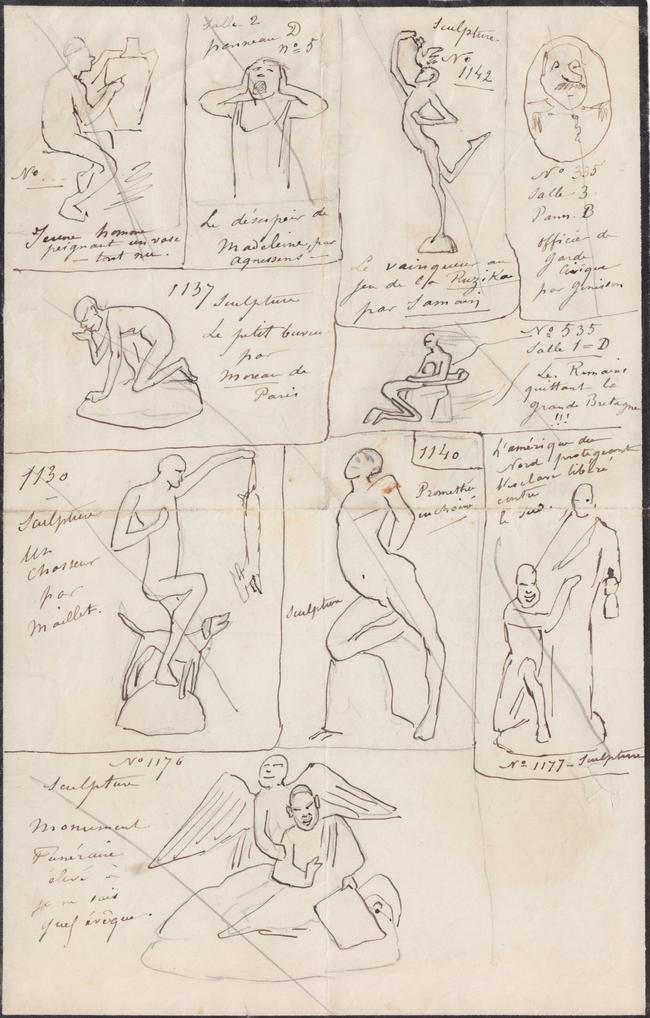 No
Jeune homme
peignant un vase
— tout nu. —
Salle 2
panneau D
no 5
Le désespoir de
Madeleine, par
Agneesens —
Sculpture
No
1142
Le vainqueur au
jeu de la Ruzika
par Samain
No 335
Salle 3.
Pann. B
officier de
garde
civique
par
1137 Sculpture
Le petit buveur
par
Moreau de
Paris
No 535
Salle 1 = D
Les Romains
quittant la
Grande Bretagne
!!!
1130
—
Sculpture
Un
Chasseur
par
Maillet.
1140
Promethée
enchaîné
Sculpture
L'amérique du
Nord protégeant
l'esclave libéré
contre
le sud.
No 1177 — Sculpture
No 1176
Sculpture
Monument
Funéraire
élevé à
je ne sais
quel évêque.